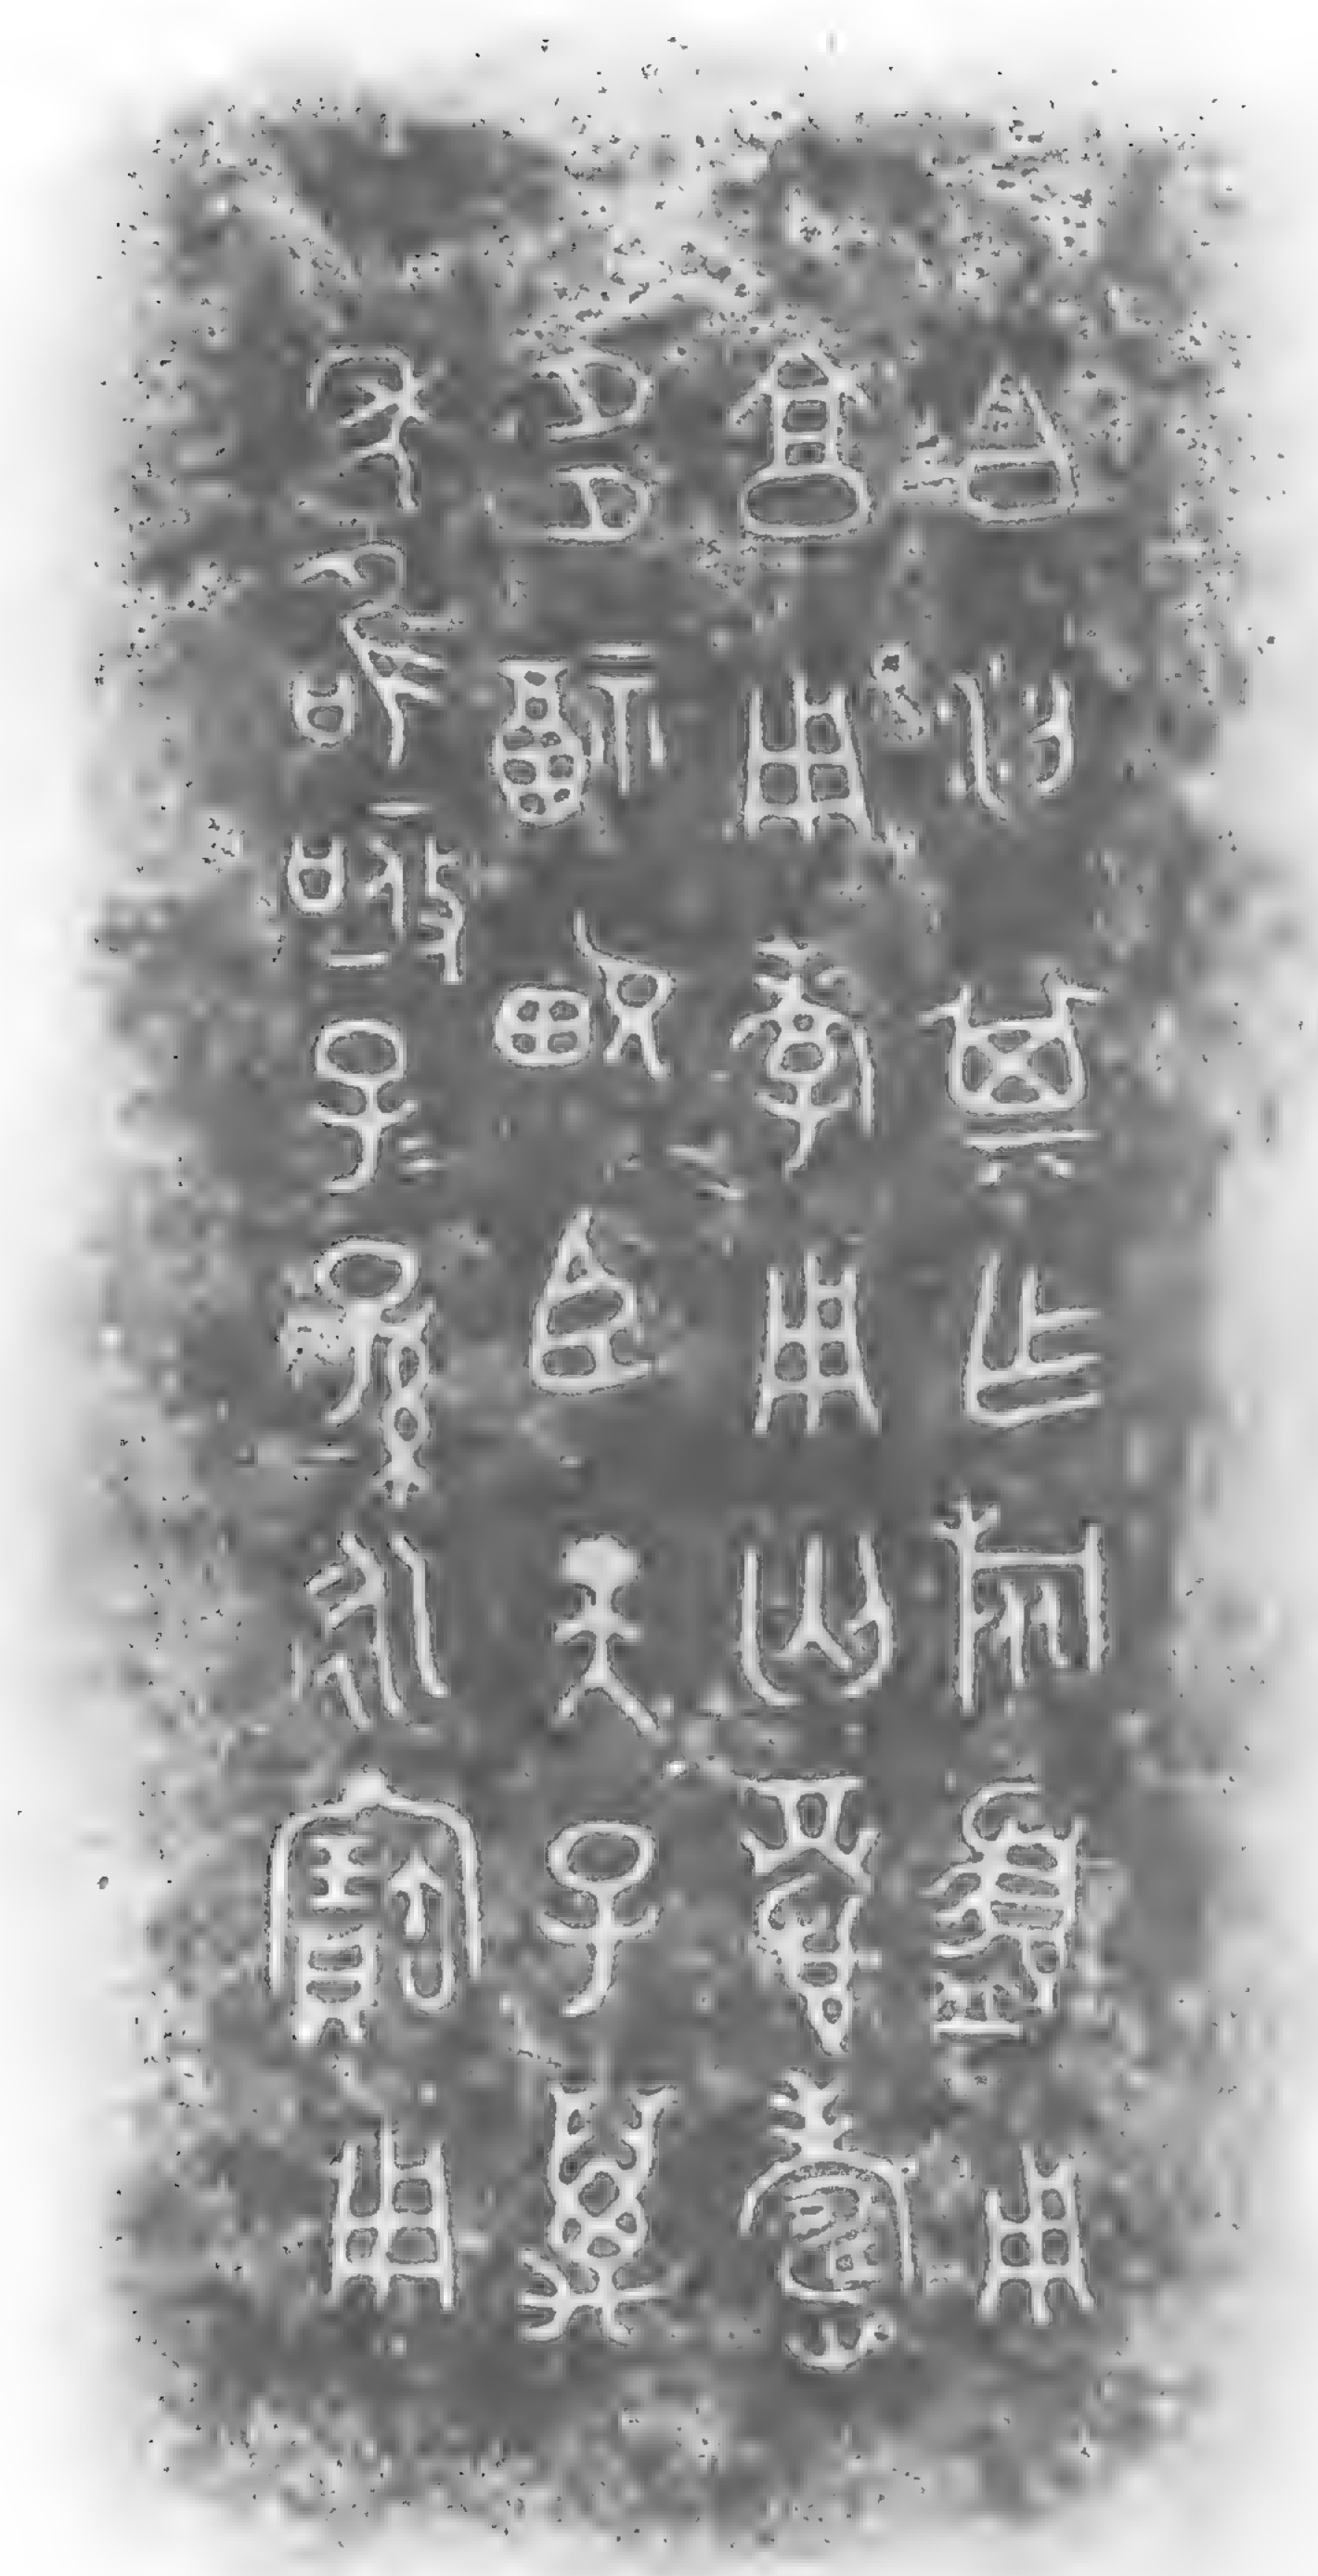 白汈其乍旅盨用
亯用孝用匄眉壽
多福畯臣天子萬
年唯亟子子孫孫永寶用